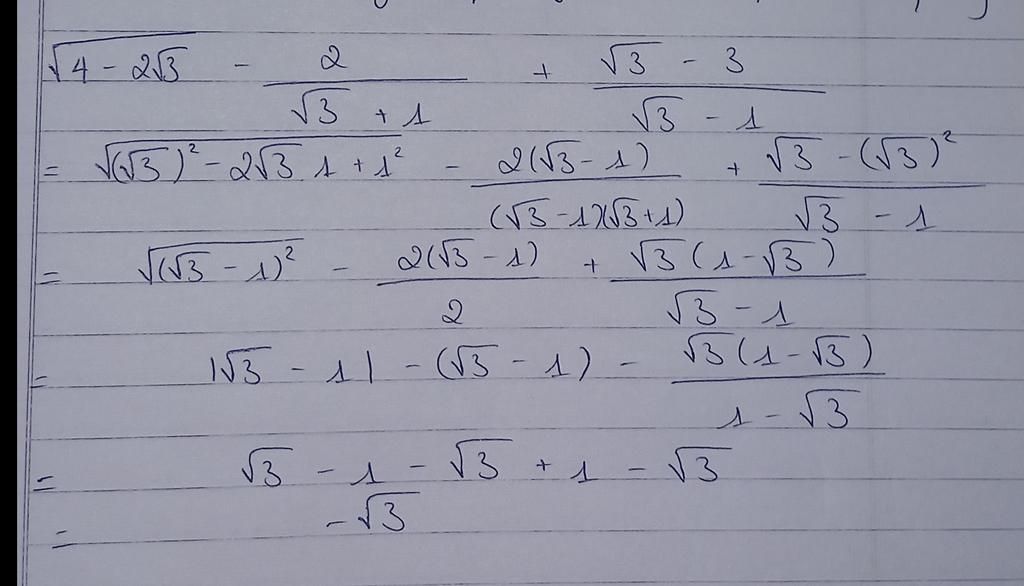 √(4 - 2√3) - 2/(√3 + 1) + (√3 - 3)/(√3 - 1)
= √((√3)² - 2√3 1 + 1²) - 2(√3 - 1)/((√3 - 1)(√3 + 1)) + (√3 - (√3)²)/(√3 - 1)
= √((√3 - 1)²) - 2(√3 - 1)/2 + √3(1 - √3)/(√3 - 1)
= |√3 - 1| - (√3 - 1) - √3(1 - √3)/(1 - √3)
= √3 - 1 - √3 + 1 - √3
= -√3